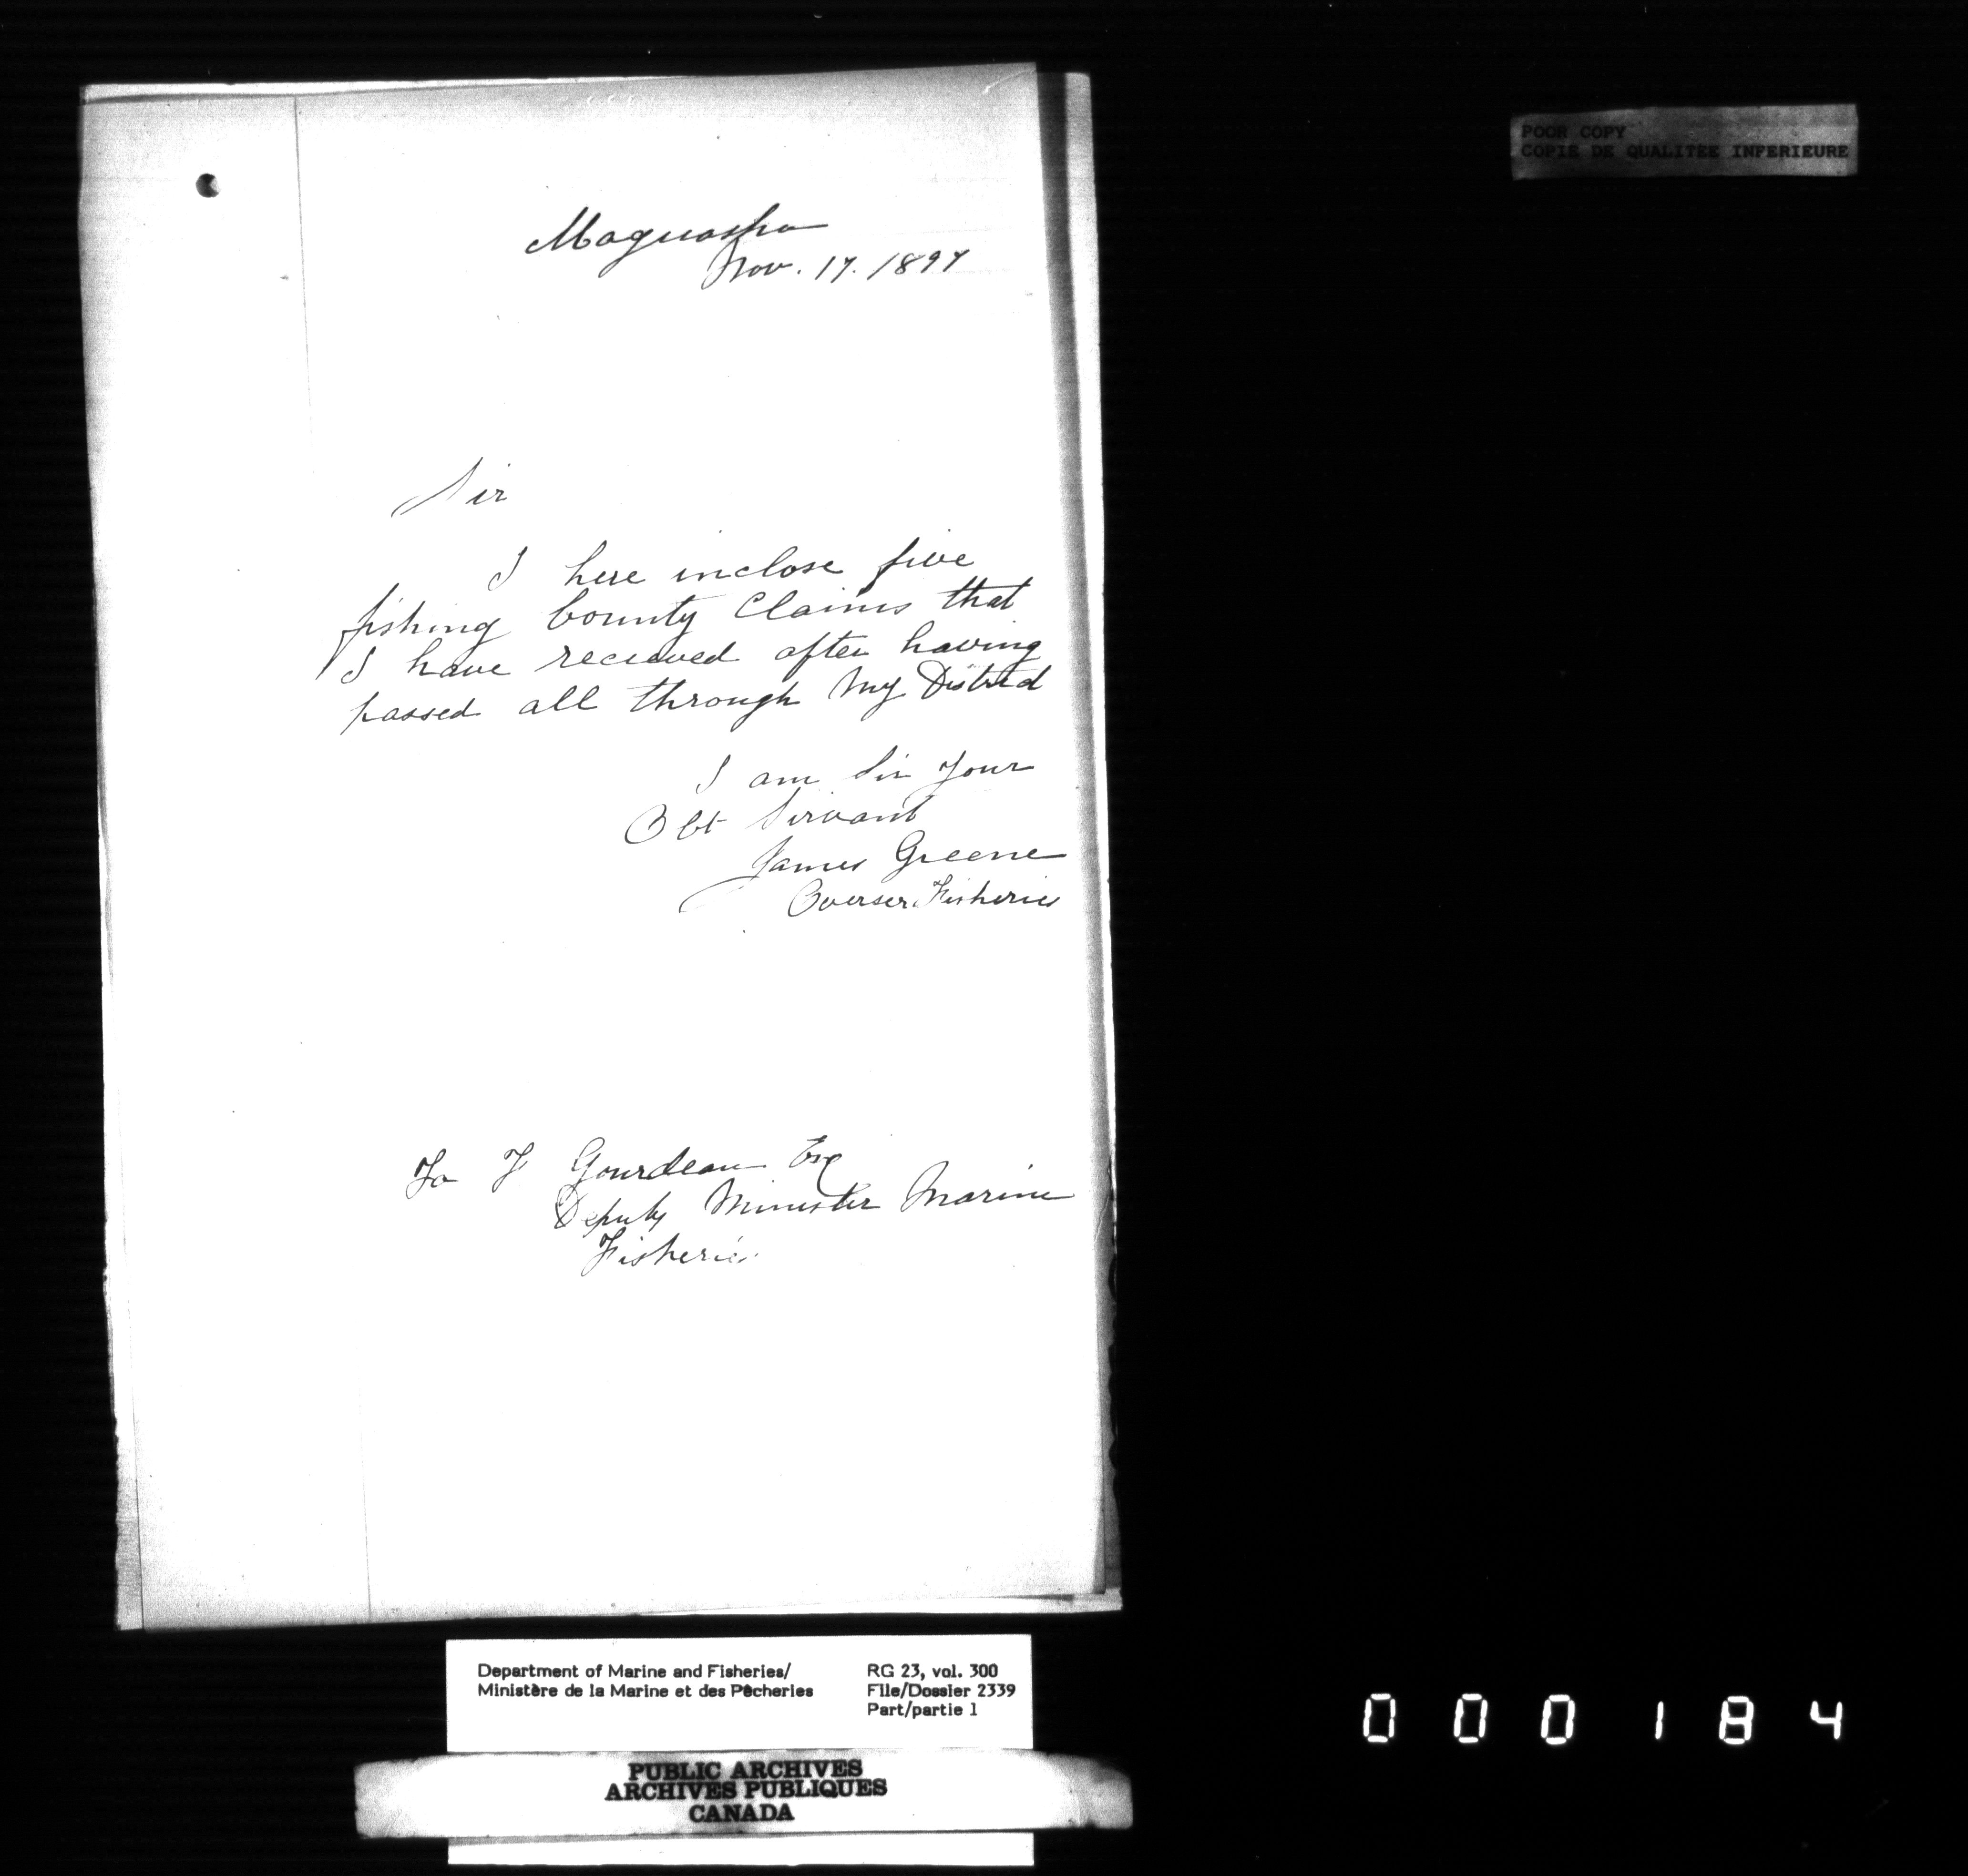 Maguasha
Nov. 17. 1897
Sir
I here inclose five
fishing bounty Claims that
I have recieved after having
passed all through My District
I am Sir your
Obt Servant
James Greene
Overser Fisheries
To F Gourdeau Esq
Deputy Minister Marine
Fisheries
POOR COPY
COPIE DE QUALITEE INFERIEURE
Department of Marine and Fisheries/
Ministère de la Marine et des Pêcheries
RG 23, vol. 300
File/Dossier 2339
Part/partie 1
PUBLIC ARCHIVES
ARCHIVES PUBLIQUES
CANADA
000184